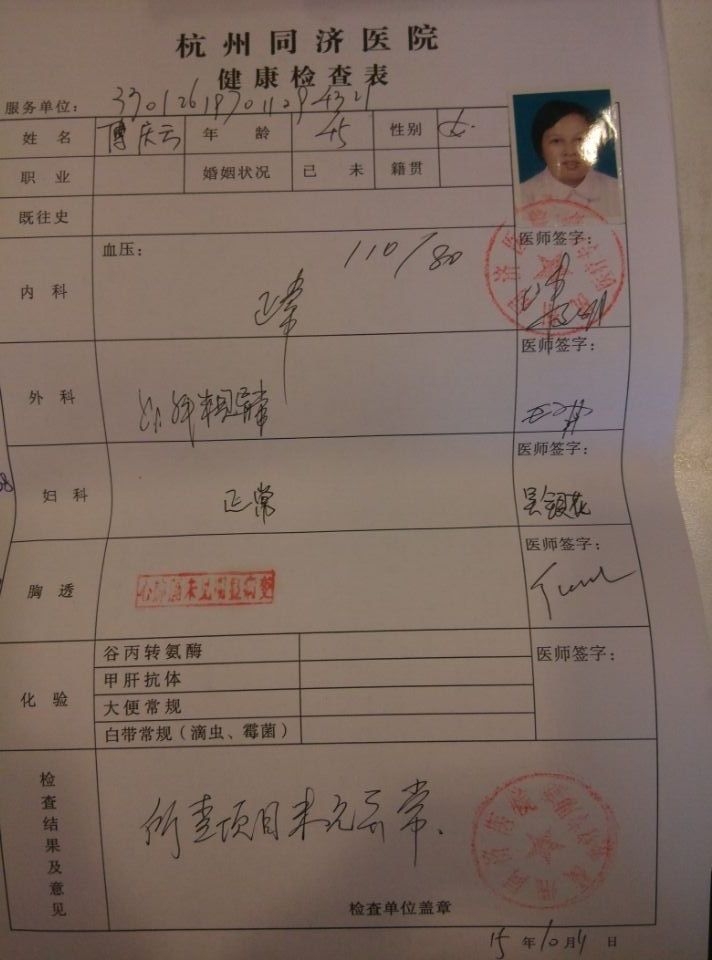 杭州同济医院
健康检查表
服务单位：
姓名 傅庆云 年龄 45 性别 女
职业 婚姻状况 已 未 籍贯
既往史
内科 血压： 110/80 医师签字：
正常
外科 医师签字：
妇科 正常 医师签字：
吴银花
胸透 心肺膈未见明显病变 医师签字：
化验 谷丙转氨酶 医师签字：
甲肝抗体
大便常规
白带常规（滴虫、霉菌）
检查结果及意见 所查项目未见异常、
检查单位盖章
15 年 10 月 日